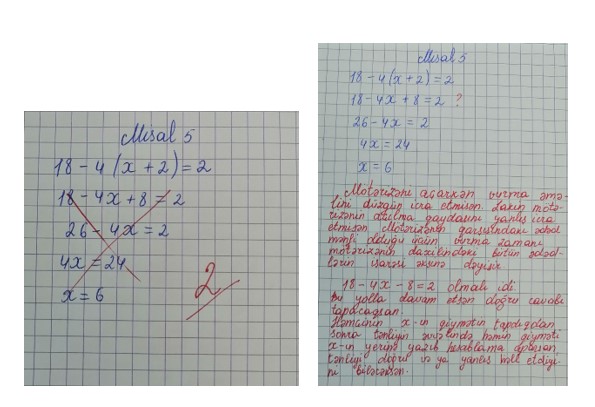 Misal 5
18 - 4(x + 2) = 2
18 - 4x + 8 = 2
26 - 4x = 2
4x = 24
x = 6
2
Misal 5
18 - 4(x + 2) = 2
18 - 4x + 8 = 2 ?
26 - 4x = 2
4x = 24
x = 6
Mötərizəni açarkən vurma əmə-
lini düzgün icra etmisən. Lakin mötə-
rizənin açılma qaydasını yanlış icra
etmisən. Mötərizənin qarşısındakı ədəd
mənfi olduğu üçün vurma zamanı
mötərizənin daxilindəki bütün ədəd-
lərin işarəsi əksinə dəyişir.
18 - 4x - 8 = 2 olmalı idi.
Bu yolla davam etsən doğru cavabı
tapacaqsan.
Həmçinin x-in qiymətin tapdıqdan
sonra tənliyin əvvəlində həmin qiyməti
x-in yerinə yazıb hesablama aparsan
tənliyi doğru və ya yanlış həll etdiyi-
ni biləcəksən.